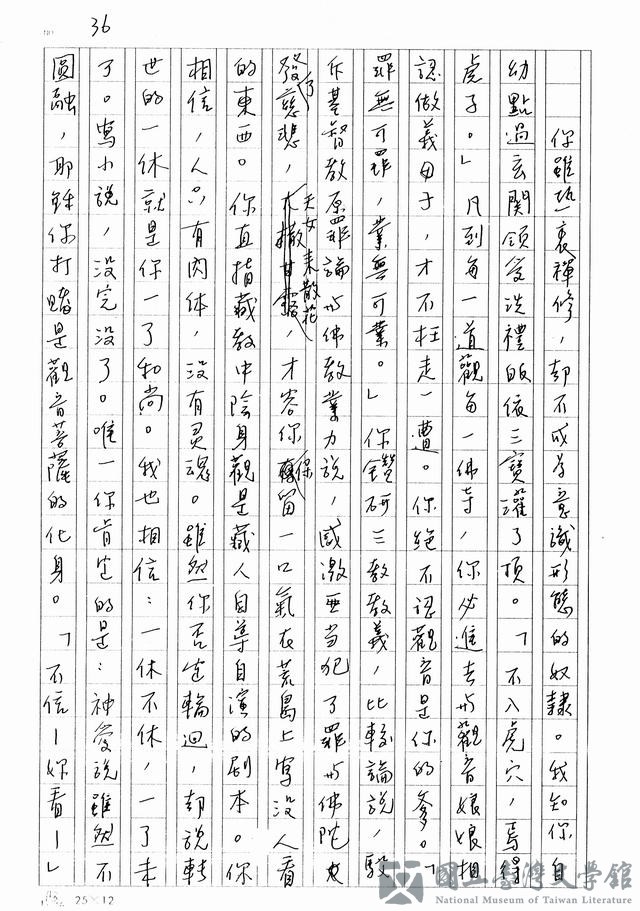 36
你雖熱衷禪修,却不成為意識形態的奴隸。我知你自
幼點過玄關領受洗禮皈依三寶灌了頂。「不入虎穴,焉得
虎子。」凡到每一道觀每一佛寺,你必進去與觀音娘娘相
認做義母子,才不枉走一遭。你絕不認觀音是你的爹。「
罪無可罪,業無可業。」你鑽研三教教義,比較論說,駁
斥基督教原罪論與佛教業力說,感激亞当犯了罪與佛陀
發了慈悲,天女來散花,才容你保留一口氣在荒島上寫没人看
的東西。你直指藏教中陰身觀是藏人自導自演的剧本。你
相信,人只有肉体,没有灵魂。雖然你否定輪迴,却說轉
世的一休就是你一了和尚。我也相信:一休不休,一了未
了。寫小說,没完没了。唯一你肯定的是:神愛說雖然不
圓融,耶穌你打賭是觀音菩薩的化身。「不信—妳看—」
25×12
國立臺灣文學館
National Museum of Taiwan Literature